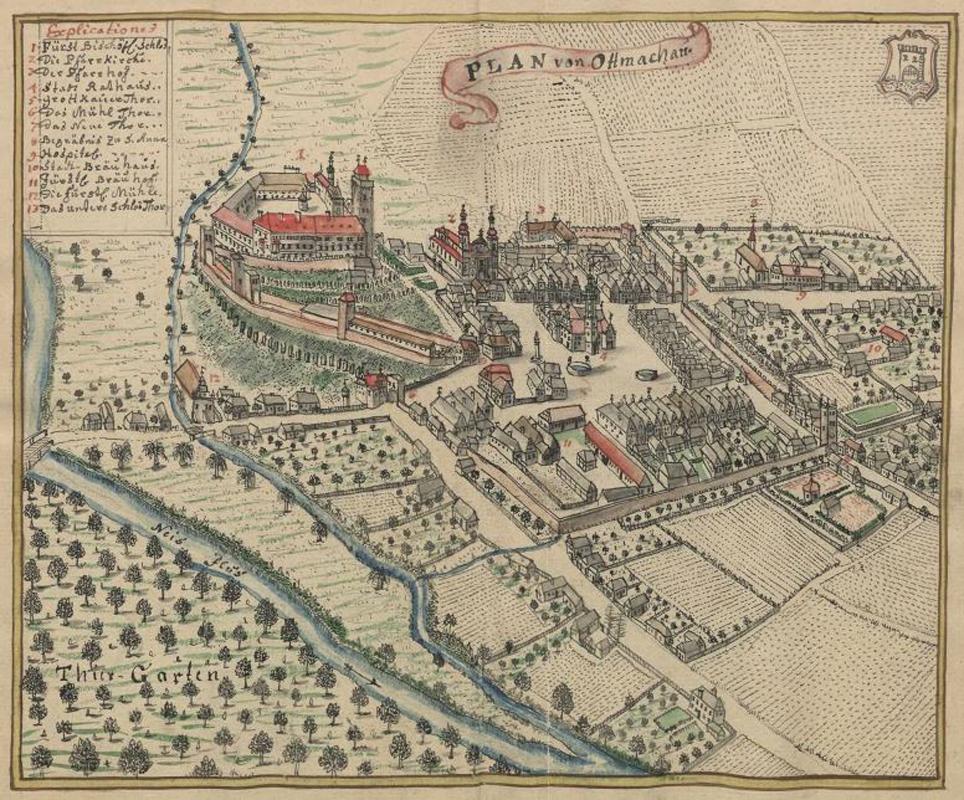 Explicationes
1. Fürst Bischöfl. Schloß.
2. Die Pfarrkirche.
3. Der Pfarrhof.
4. Statt Rathaus.
5. Grottkauer Thor.
6. Das Mühl Thor.
7. Das Neue Thor.
8. Begräbnis zu S. Anna
9. Hospital.
10. Statt Bräuhaus.
11. Fürstl. Bräuhof.
12. Die fürstl. Mühle.
13. Das undere Schlos Thor
PLAN von Ottmachau.
1
2
3
8
9
4
10
12
11
Neis
Flus
Thier-Garten